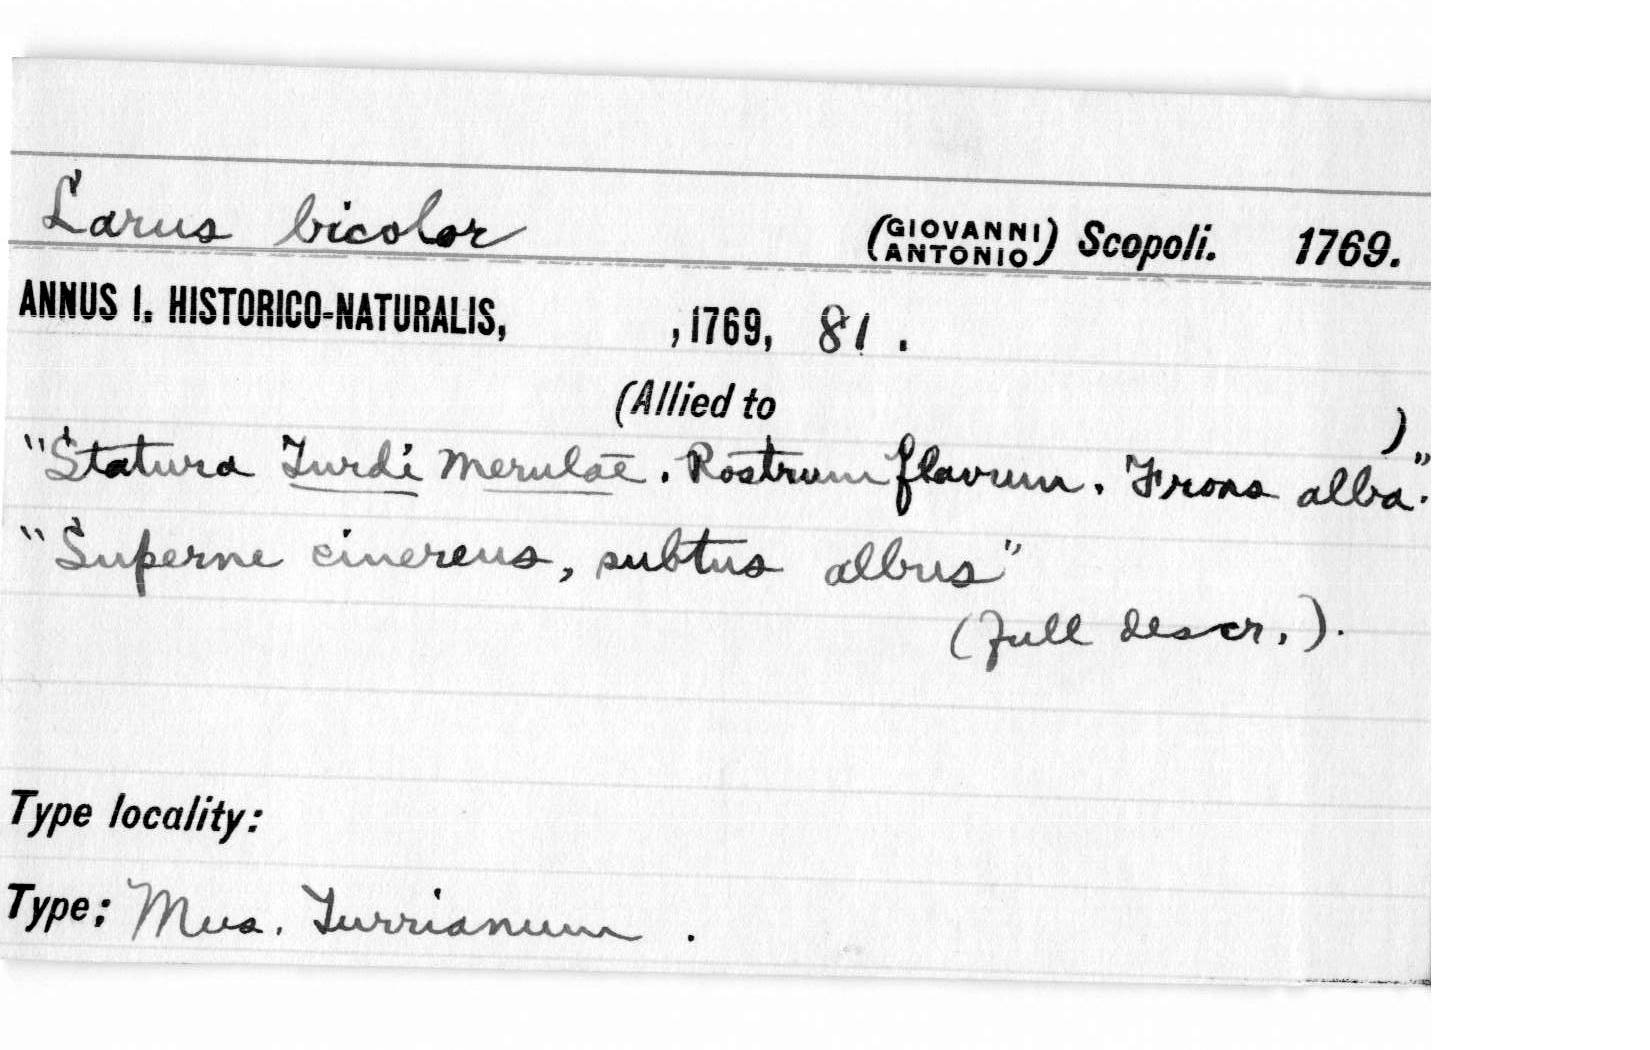 Larus bicolor (GIOVANNI ANTONIO) Scopoli. 1769.
ANNUS I. HISTORICO-NATURALIS, , 1769, 81 .
(Allied to )
"Statura Turdi Merulae . Rostrum flavum . Frons alba."
"Superne cinereus, subtus albus"
(full descr.).
Type locality:
Type: Mus. Turrianum .